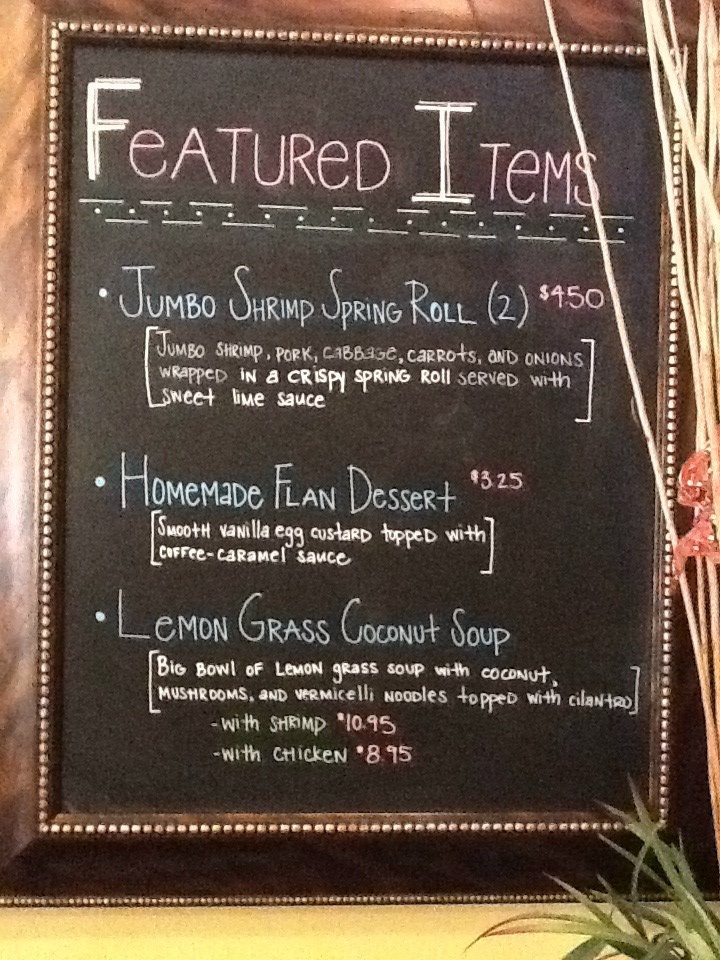 FEATURED ITEMS
• JUMBO SHRIMP SPRING ROLL (2) $4.50
[JUMBO SHRIMP, PORK, CABBAGE, CARROTS, AND ONIONS
WRAPPED IN A CRISPY SPRING ROLL SERVED WITH
SWEET LIME SAUCE]
• HOMEMADE FLAN DESSERT $3.25
[SMOOTH VANILLA EGG CUSTARD TOPPED WITH
COFFEE-CARAMEL SAUCE]
• LEMON GRASS COCONUT SOUP
[BIG BOWL OF LEMON GRASS SOUP WITH COCONUT,
MUSHROOMS, AND VERMICELLI NOODLES TOPPED WITH CILANTRO]
-WITH SHRIMP $10.95
-WITH CHICKEN $8.95